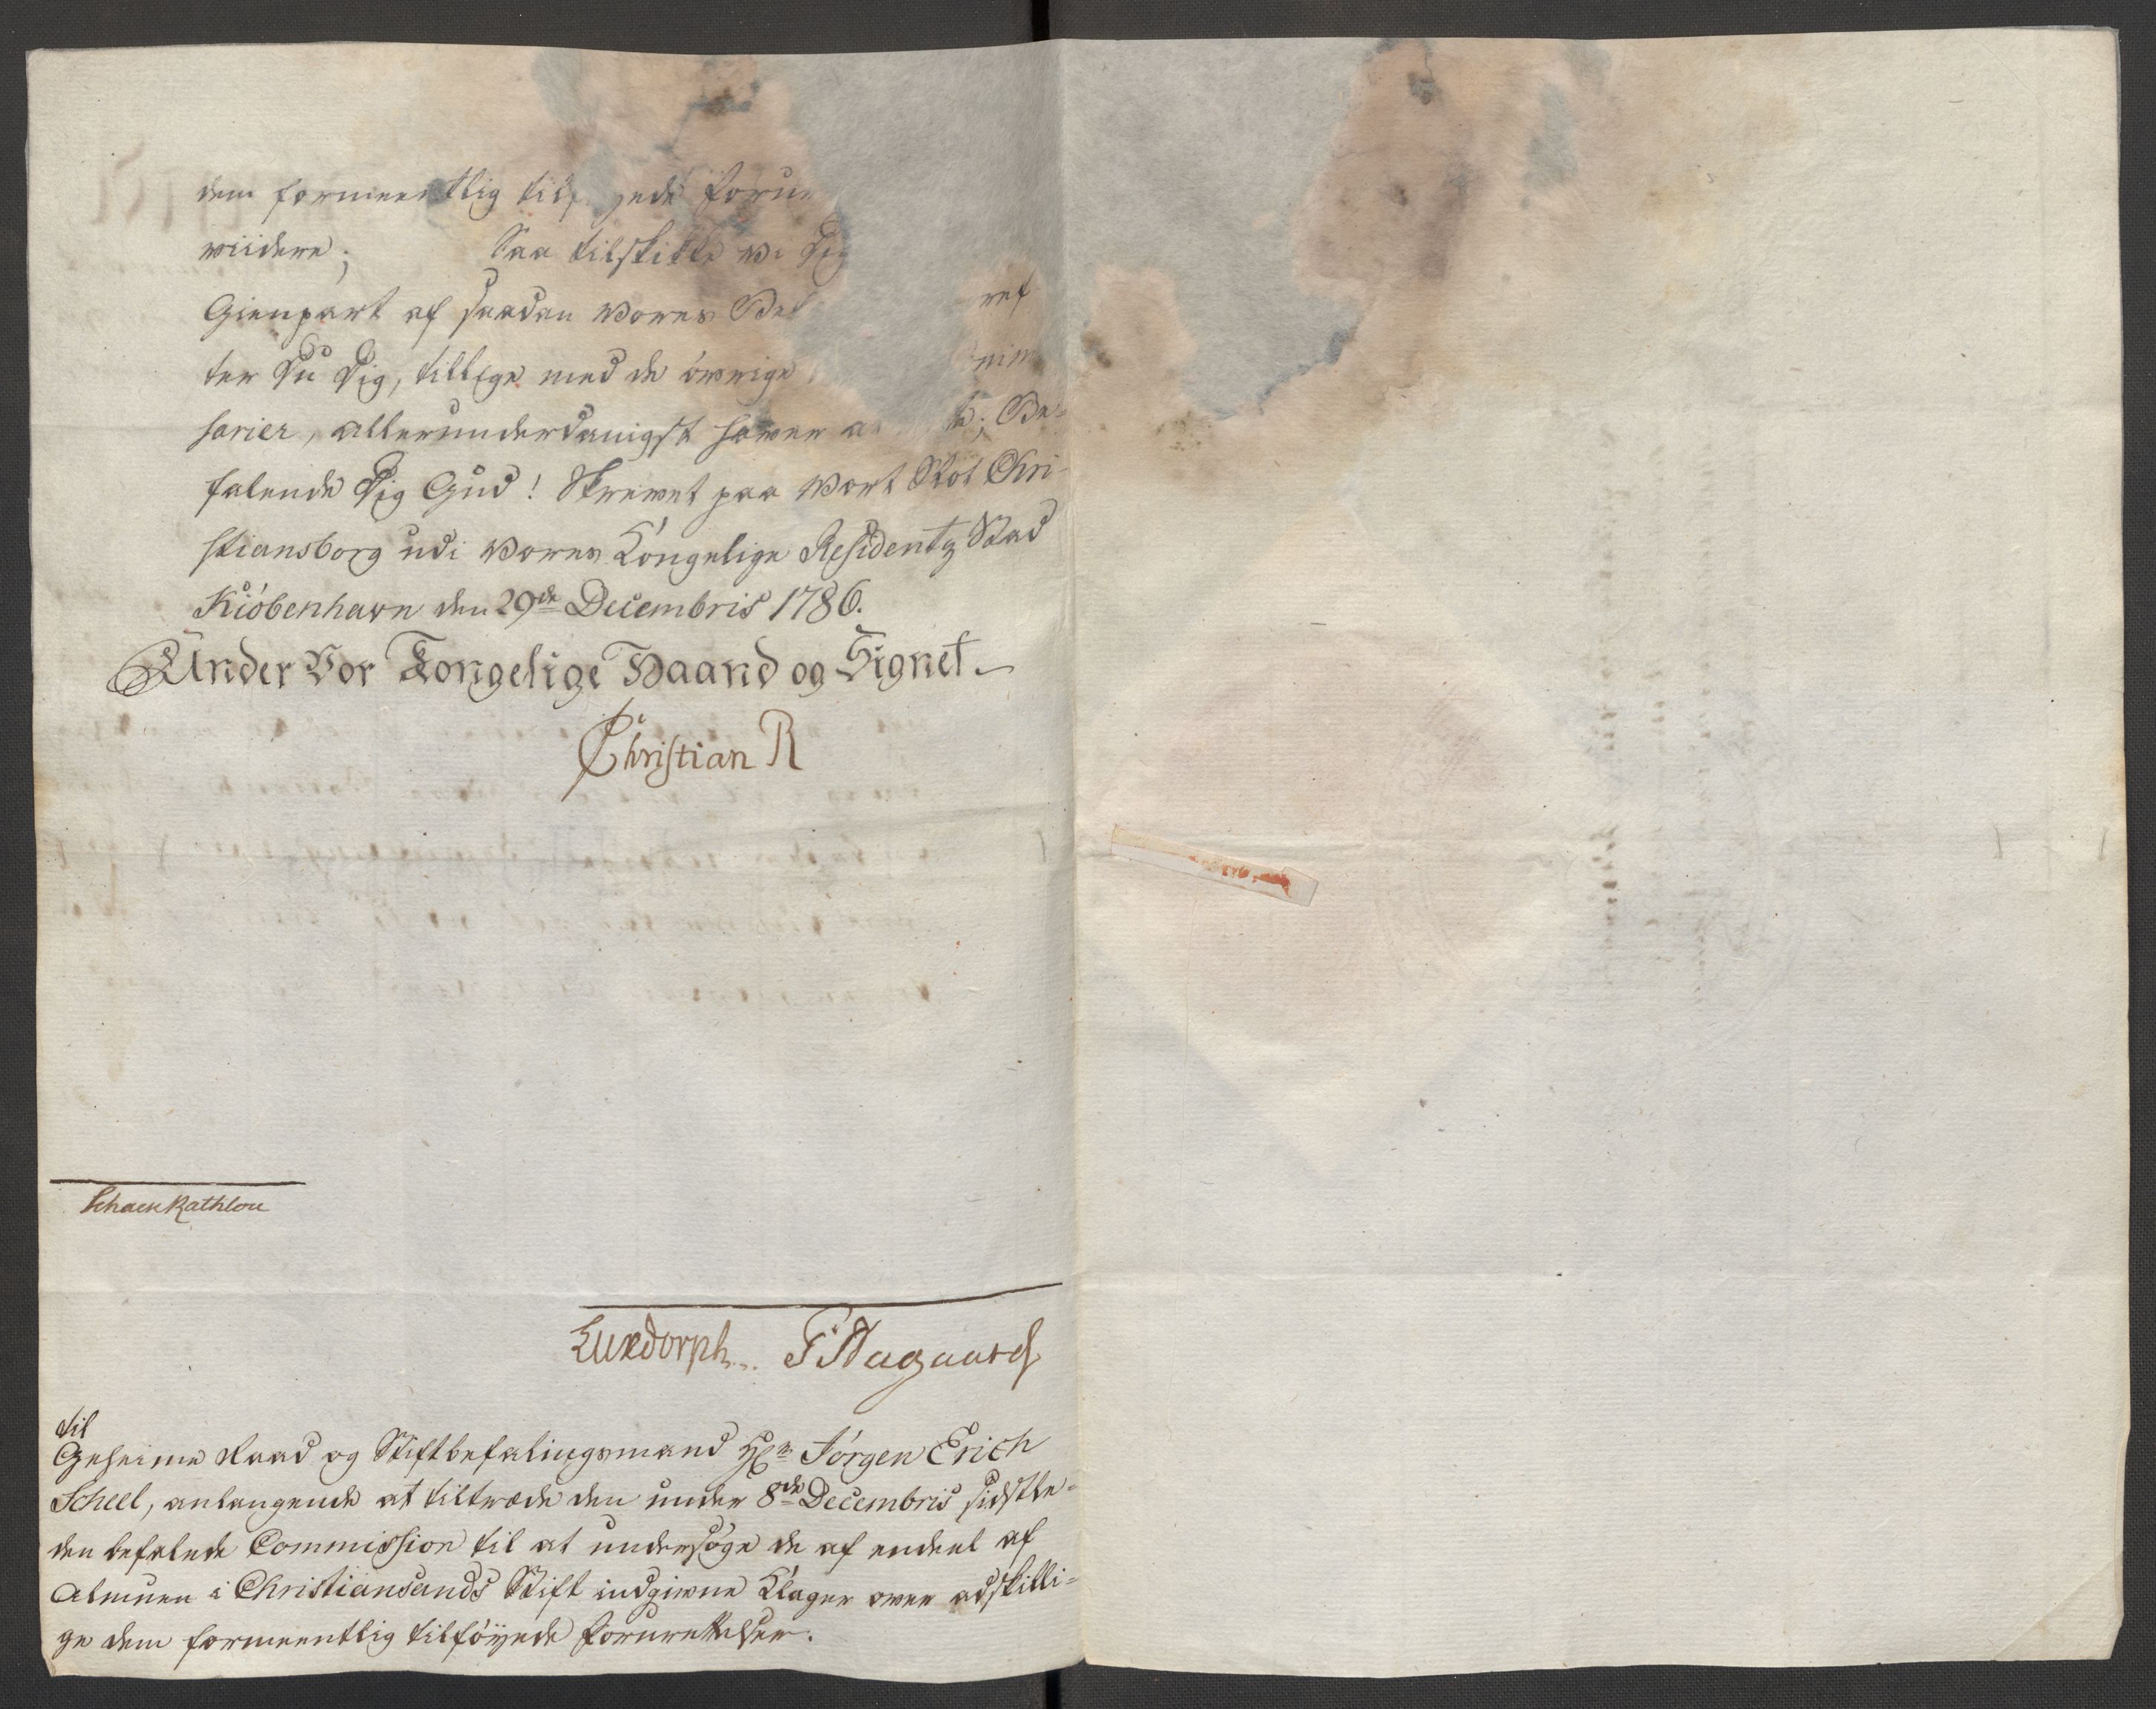 dem formeentlig tilf jede forur
wiidere; Saa tilskikke wi Dig
Gienpart af saadan Wores Bef ref
ter Du Dig, tillige med de öwrige mis
sarier, allerunderdanigst hawer a te; Be-
falende Dig Gud! Skrewet paa Wort Slot Chri-
stiansborg udi Wores Kongelige Residentz Stad
Kiöbenhavn den 29de Decembris 1786.
Under Vor Kongelige Haand og Signet.
Christian R
SchackRathlou
Luxdorph. Aagaard
til
Geheime Raad og Stiftbefalingsmand Hr. Jörgen Erich
Scheel, anlangende at tiltræde den under 8de Decembris sidstle-
den befalede Commission til at undersöge de af endeel af
Almuen i Christiansands Stift indgivne Klager over adskilli-
ge dem formeentlig tilföyede forurettelser.